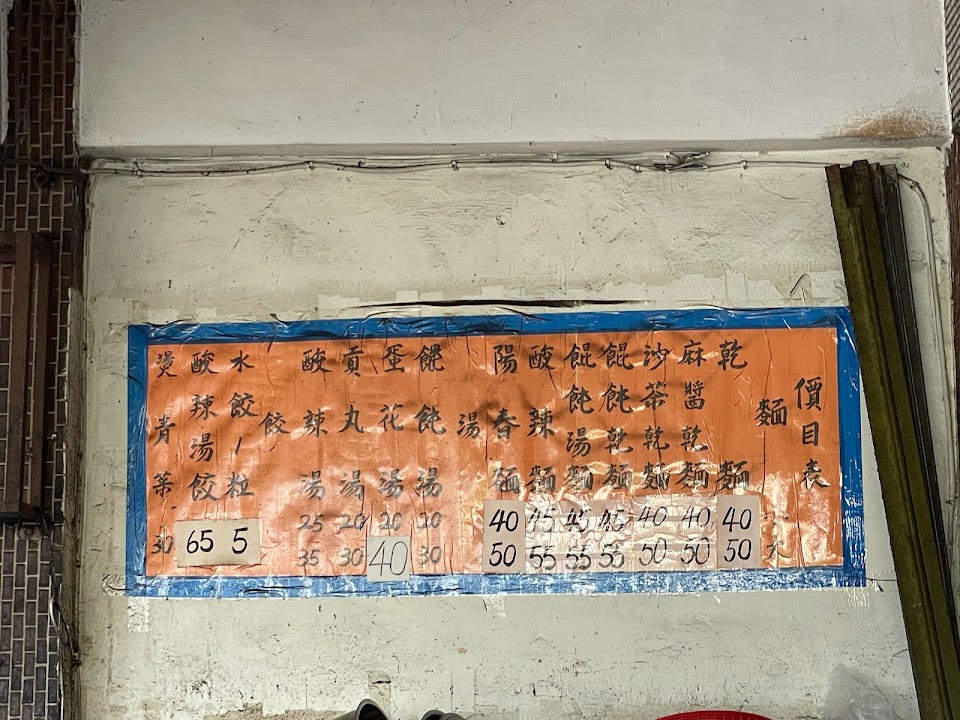 價目表
麵
乾麵 40 50
麻醬乾麵 40 50
沙茶乾麵 40 50
餛飩乾麵 45 55
餛飩湯麵 45 55
酸辣麵 45 55
陽春麵 40 50
湯
餛飩湯 20 30
蛋花湯 20 40
貢丸湯 20 30
酸辣湯 25 35
餃
水餃1粒 5
酸辣湯餃 65
燙青菜 30